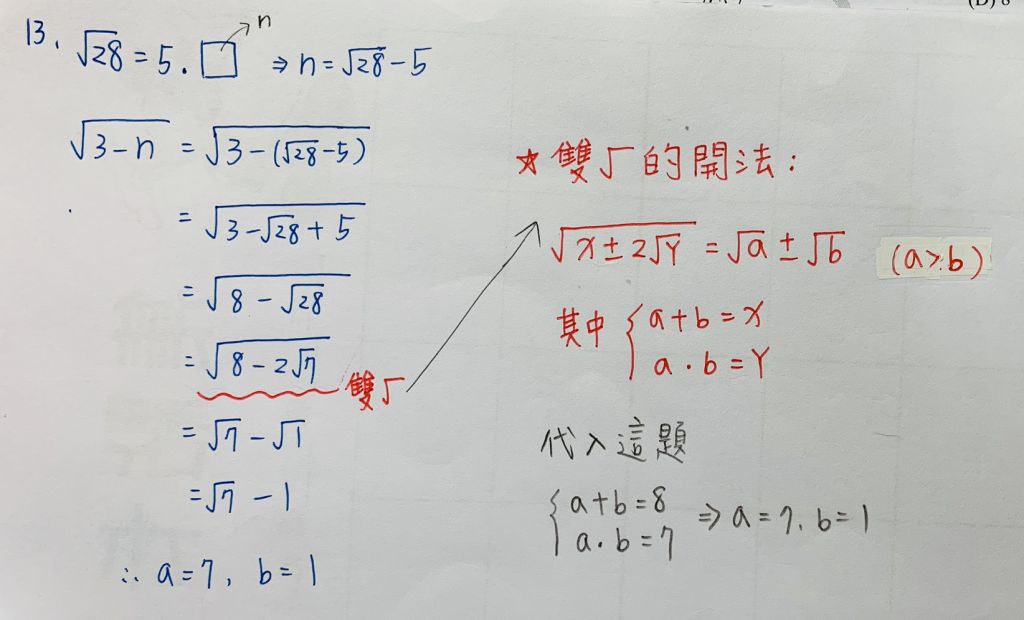 (D) 8
13. √28 = 5.□ → n ⇒ n = √28 - 5
√(3-n) = √(3-(√28-5))
= √(3-√28+5)
= √(8-√28)
= √(8-2√7) 雙√
= √7 - √1
= √7 - 1
∴ a=7, b=1
★雙√的開法:
√(x±2√Y) = √a ± √b (a>b)
其中 { a+b=x
a·b=Y
代入這題
{ a+b=8
a·b=7 ⇒ a=7, b=1